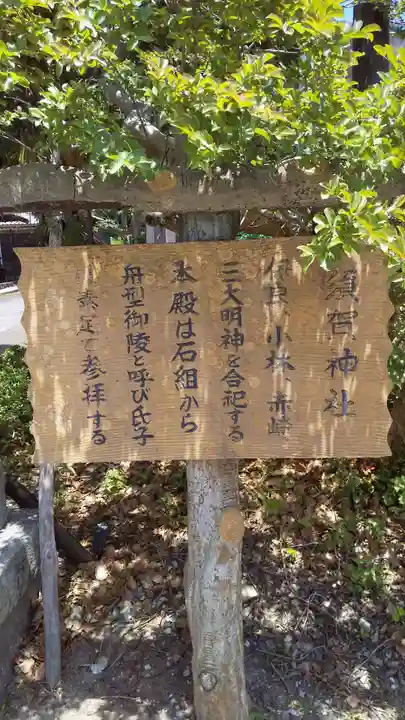 須賀神社
伊良、小林、赤崎
三大明神を合祀する
本殿は石組から
舟型御陵と呼び氏子
素足で参拝する